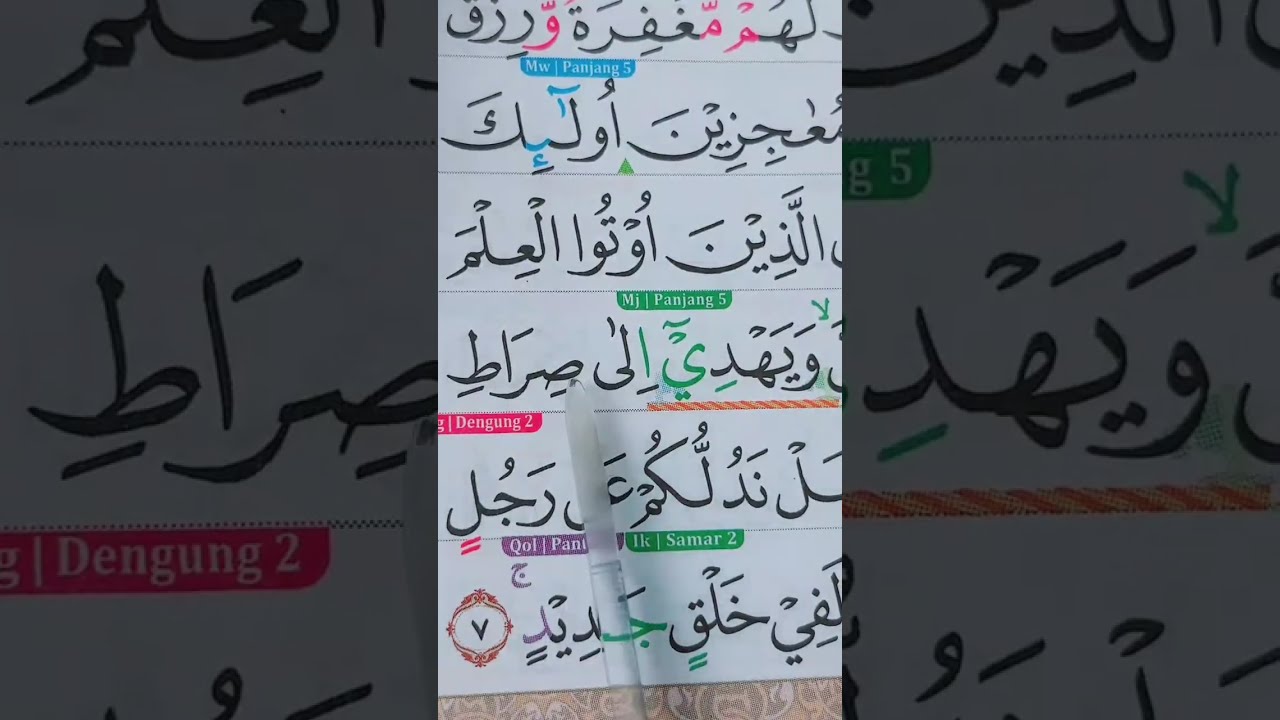 لَهُمْ مَّغْفِرَةٌ وَّرِزْقٌ
Mw | Panjang 5
مُعٰجِزِيْنَ اُولٰۤىِٕكَ
الَّذِيْنَ اُوْتُوا الْعِلْمَ
Mj | Panjang 5
وَيَهْدِيْٓ اِلٰى صِرَاطِ
g | Dengung 2
نَدُلُّكُمْ عَلٰى رَجُلٍ
Ik | Samar 2
لَفِيْ خَلْقٍ جَدِيْدٍۚ ٧